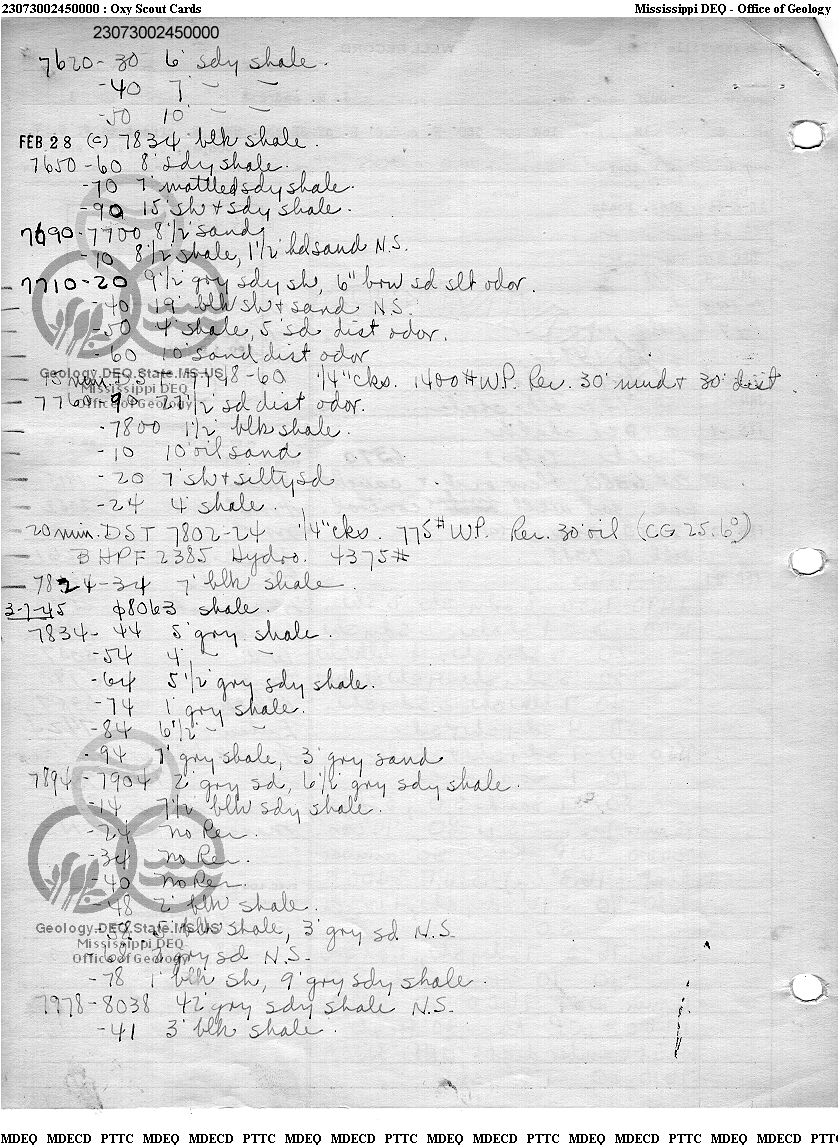 23073002450000 : Oxy Scout Cards Mississippi DEQ - Office of Geology
23073002450000
7620-30 6' sdy shale.
-40 7' - -
-50 10' - -
FEB 28 (C) 7834 blk shale.
7650-60 8' sdy shale.
-70 7' mattled sdy shale.
-90 15' sh + sdy shale.
7690-7700 8 1/2' sand
-10 8 1/2' shale, 1 1/2' hd sand N.S.
7710-20 9 1/2' gry sdy sh, 6" sd slt odor.
-40 19' blk sh + sand N.S.
-50 4' shale, 5' sd dist odor.
-60 10' sand dist odor
Geology.DEQ.State.MS.US
15 min. DST 7748-60 1/4" cks. 1400# WP. Rec. 30' mud + 30' dist
Mississippi DEQ
Office of Geology
7760-90 27 1/2' sd dist odor.
-7800 1 1/2' blk shale.
-10 10' oil sand
-20 7' sh + silty sd
-24 4' shale.
20 min. DST 7802-24 1/4" cks. 775# WP. Rec. 30' oil (CG 25.6°)
BHPF 2385 Hydro. 4375#
7824-34 7' blk shale.
3-7-45 φ8063 shale.
7834-44 5' gry shale.
-54 4' - -
-64 5 1/2' gry sdy shale.
-74 1' gry shale.
-84 6 1/2' - -
-94 7' gry shale, 3' gry sand
7894-7904 2' gry sd, 6 1/2' gry sdy shale.
-14 7 1/2' blk sdy shale.
-24 no Rec.
-34 no Rec.
-40 no Rec.
-48 2' blk shale.
Geology.DEQ.State.MS.US
-58 5' blk shale, 3' gry sd N.S.
Mississippi DEQ
gry sd N.S.
Office of Geology
-78 1' blk sh, 9' gry sdy shale.
7978-8038 42' gry sdy shale N.S.
-41 3' blk shale.
MDEQ MDECD PTTC MDEQ MDECD PTTC MDEQ MDECD PTTC MDEQ MDECD PTTC MDEQ MDECD PTTC MDEQ MDECD PTTC